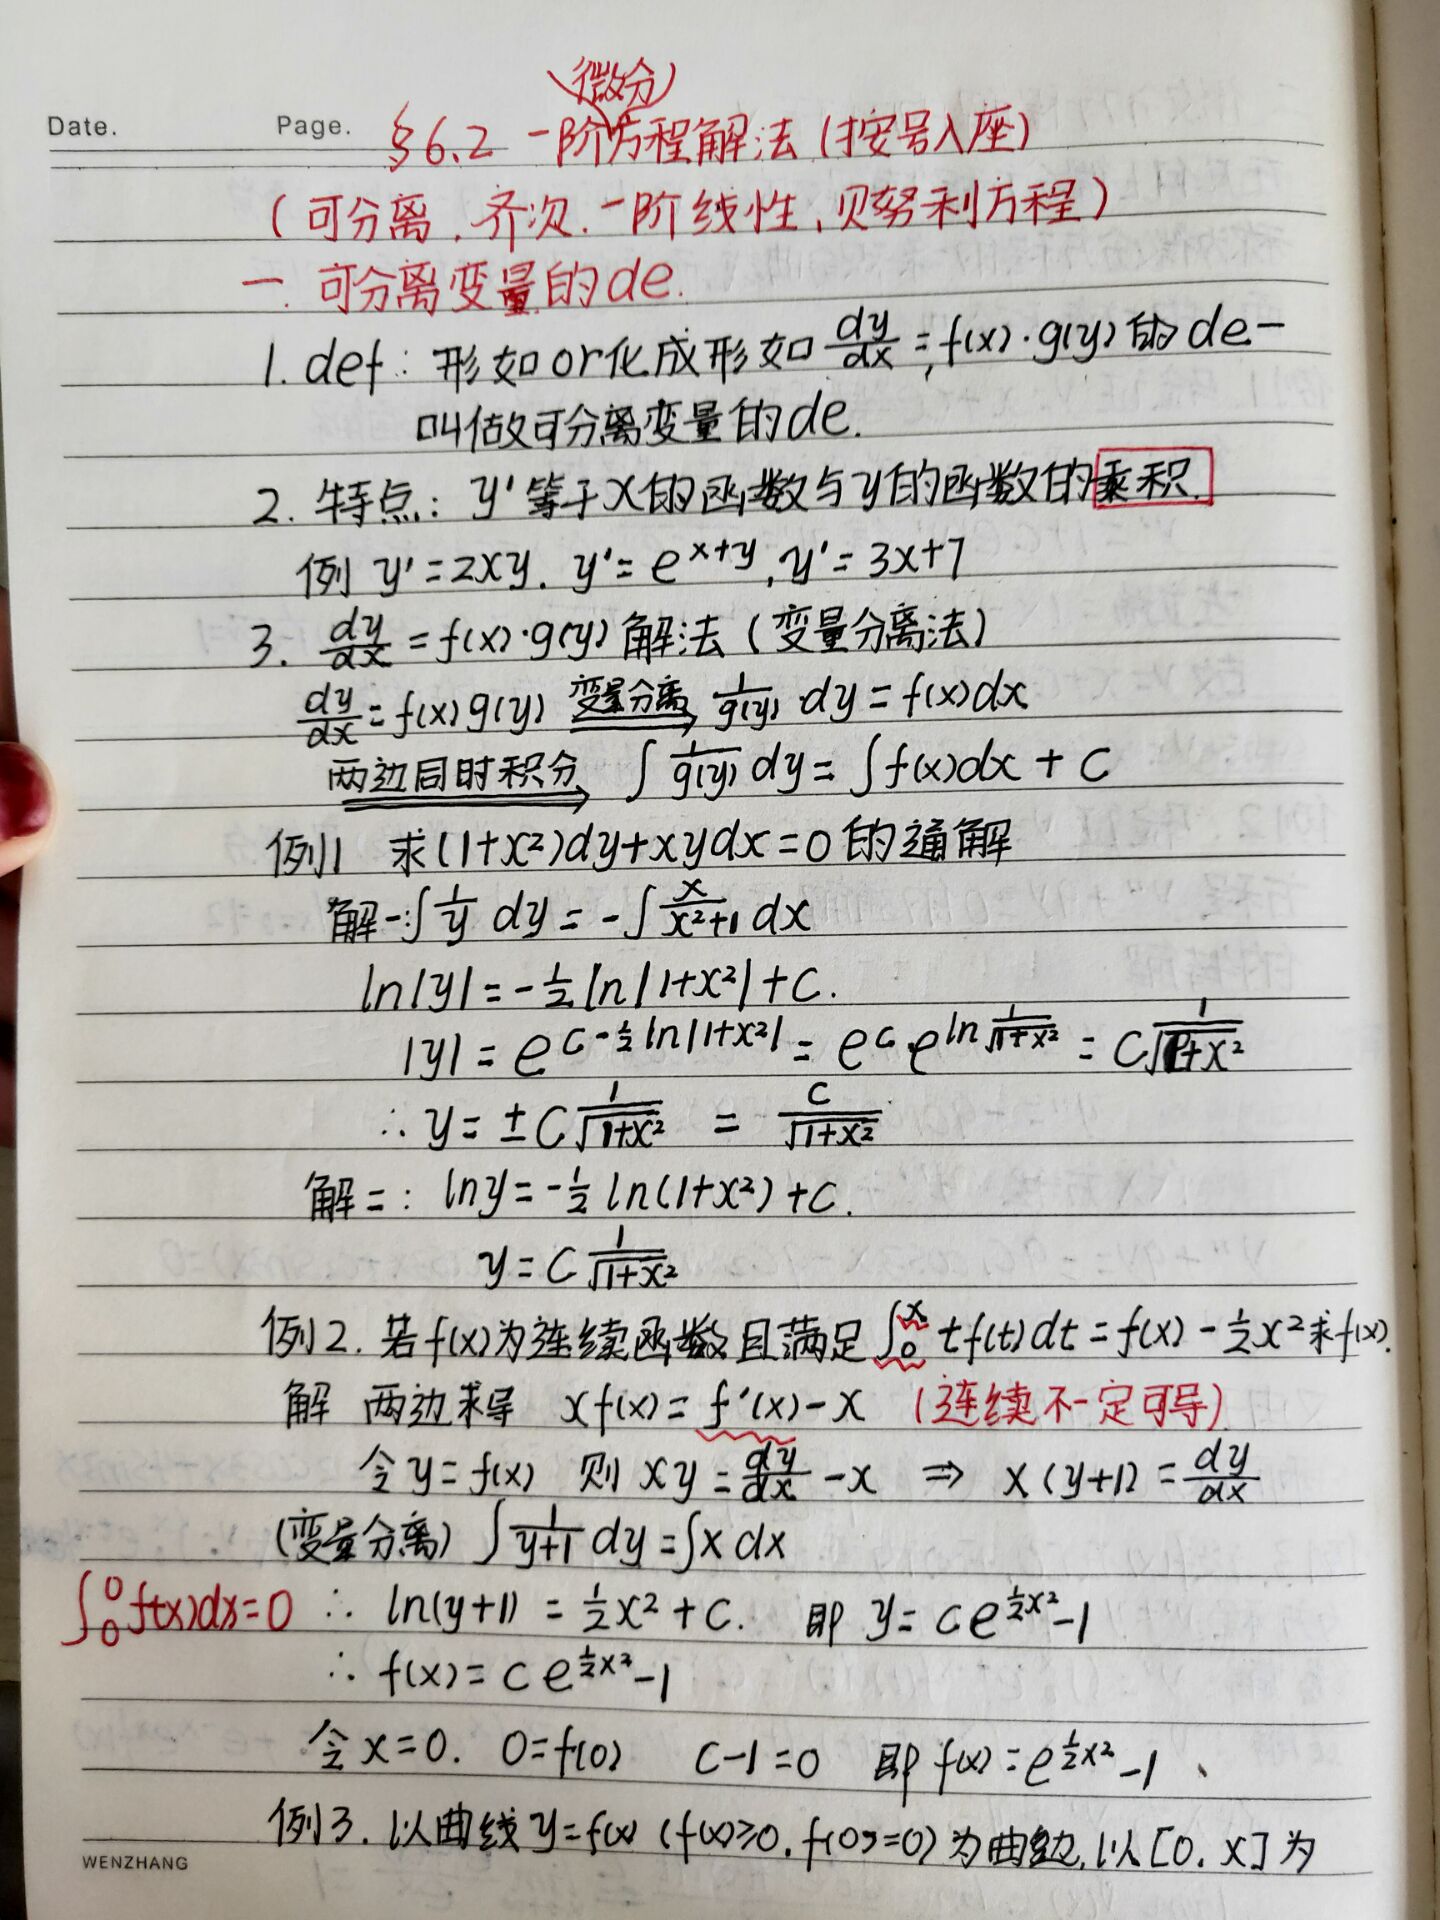 Date. Page.
§6.2 一阶(微分)方程解法(按号入座)
(可分离.齐次.一阶线性,贝努利方程)
一.可分离变量的de.
1. def: 形如or化成形如 dy/dx = f(x)·g(y) 的de-
叫做可分离变量的de.
2. 特点: y'等于x的函数与y的函数的乘积.
例 y'=2xy. y'=e^{x+y}, y'=3x+7
3. dy/dx = f(x)·g(y) 解法 (变量分离法)
dy/dx = f(x)g(y) 变量分离→ 1/g(y) ·dy = f(x)dx
两边同时积分→ ∫ 1/g(y) dy = ∫f(x)dx + C
例1 求(1+x²)dy+xydx=0的通解
解一:∫ 1/y dy = -∫ x/(x²+1) dx
ln|y| = -½ ln|1+x²| + C.
|y| = e^{C-½ln|1+x²|} = e^C · e^{ln 1/√(1+x²)} = C 1/√(1+x²)
∴ y = ±C 1/√(1+x²) = C/√(1+x²)
解二: lny = -½ ln(1+x²) + C.
y = C 1/√(1+x²)
例2. 若f(x)为连续函数且满足 ∫₀ˣ tf(t)dt = f(x) - ½x² 求f(x).
解 两边求导 xf(x) = f'(x) - x (连续不一定可导)
令y=f(x) 则 xy = dy/dx - x ⇒ x(y+1) = dy/dx
(变量分离) ∫ 1/(y+1) dy = ∫x dx
∫₀⁰ f(x)dx=0 ∴ ln(y+1) = ½x² + C. 即 y = Ce^{½x²} - 1
∴ f(x) = Ce^{½x²} - 1
令x=0. 0=f(0) C-1=0 即 f(x) = e^{½x²} - 1
例3. 以曲线y=f(x) (f(x)≥0, f(0)=0) 为曲边, 以[0, x]为
WENZHANG